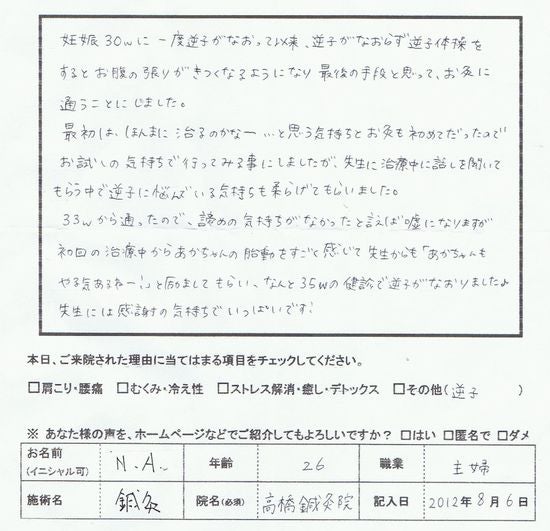 妊娠30wに一度逆子がなおって以来、逆子がなおらず逆子体操を
するとお腹の張りがきつくなるようになり最後の手段と思って、お灸に
通うことにしました。
最初は、ほんまに治るのかなー…と思う気持ちとお灸も初めてだったので
お試しの気持ちで行ってみる事にしましたが、先生に治療中に話しを聞いて
もらう中で逆子に悩んでいる気持ちも柔らげてもらいました。
33wから通ったので、諦めの気持ちがなかったと言えば嘘になりますが
初回の治療中からあかちゃんの胎動をすごく感じて先生からも「あかちゃんも
やる気あるねー!」と励ましてもらい、なんと35wの健診で逆子がなおりました♪
先生には感謝の気持ちでいっぱいです!
本日、ご来院された理由に当てはまる項目をチェックしてください。
□肩こり・腰痛 □むくみ・冷え性 □ストレス解消・癒し・デトックス □その他(逆子 )
※ あなた様の声を、ホームページなどでご紹介してもよろしいですか? □はい □匿名で □ダメ
お名前 (イニシャル可) N.A. 年齢 26 職業 主婦
施術名 鍼灸 院名(必須) 高橋鍼灸院 記入日 2012年8月6日